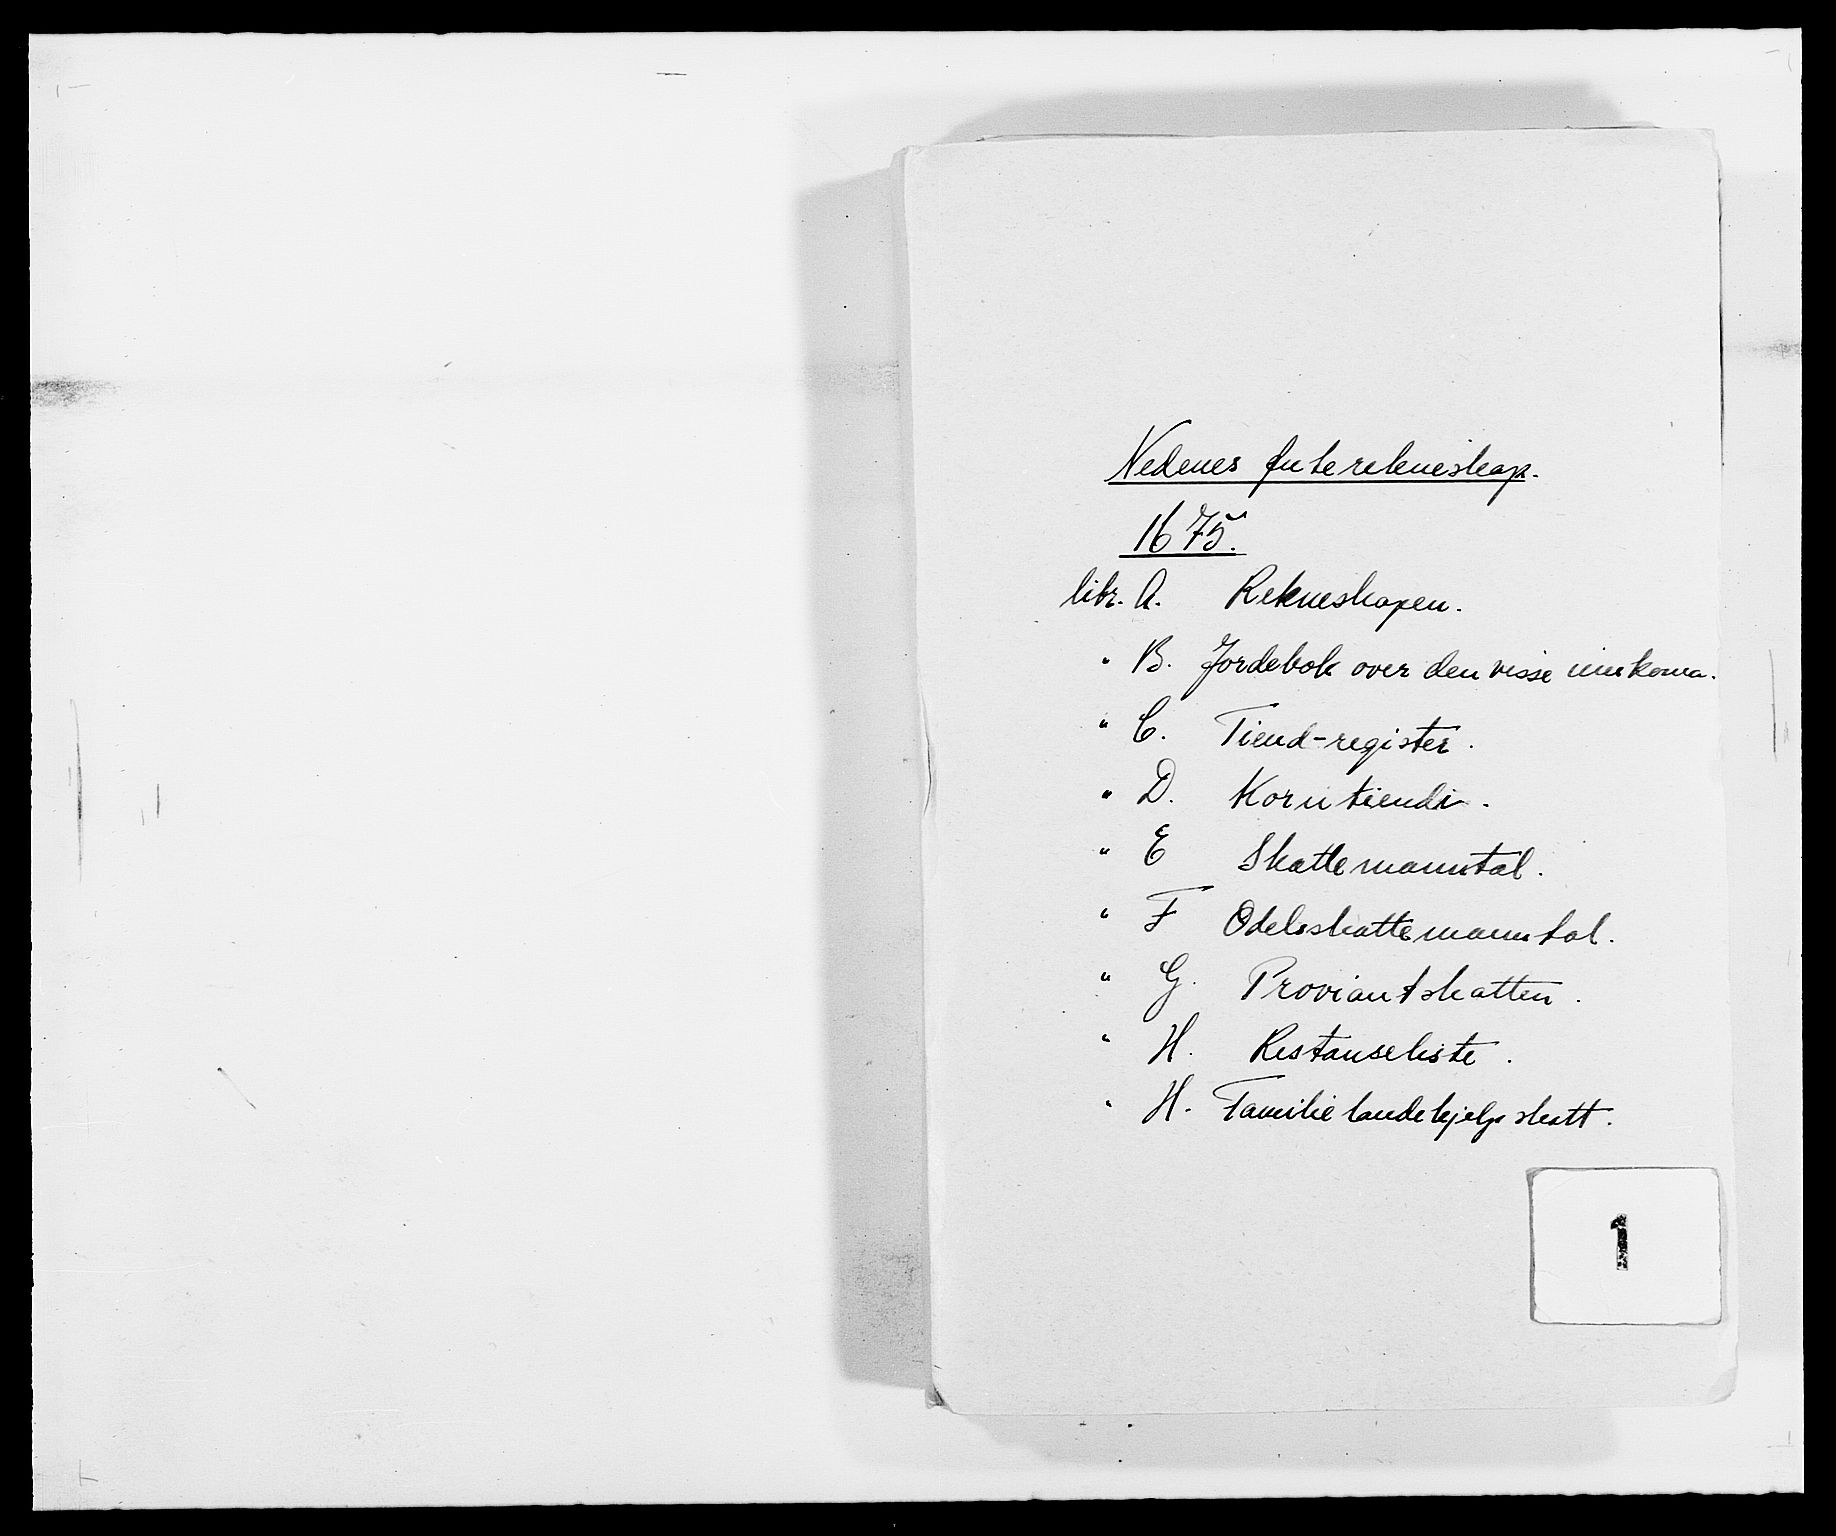 Nedenes futerekneskap.
1675.
libr. A. Rekneskapen.
" B. Jordebok over den visse innkoma.
" C. Tiend-register.
" D. Korntiendi.
" E Skattemanntal.
" F Odelsskattemanntal.
" G. Proviantskatten.
" H. Restanseliste.
" H. Familielandehjelpskatt.
1